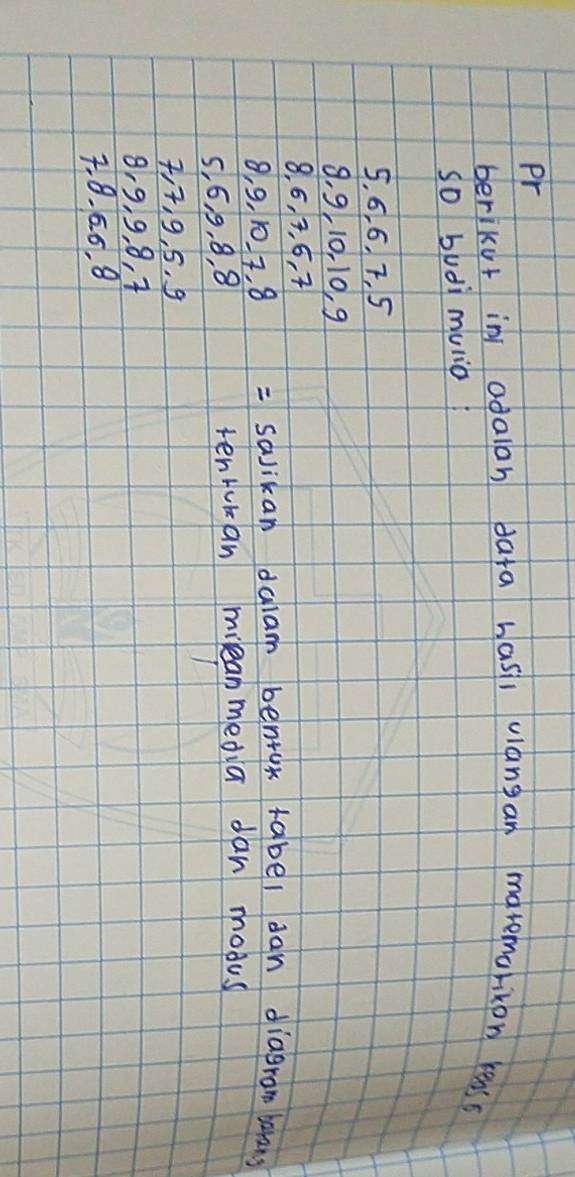 Pr
berikut ini adalah data hasil ulangan matematikan kelas 6
SD budi mulia :
5,6,6,7,5
8,9,10,10,9
8,6,7,6,7
8,9,10,7,8
5,6,9,8,8
7,7,9,5,9
8,9,9,8,7
7,8,6,6,8
= Sajikan dalam bentuk tabel dan diagram batang
tentukan mean media dan modus